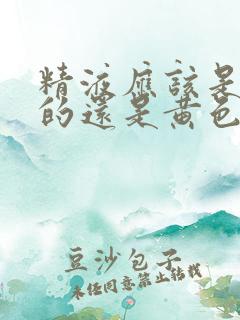 精液应该是
的还是黄色
豆沙包子
未经同意禁止转载